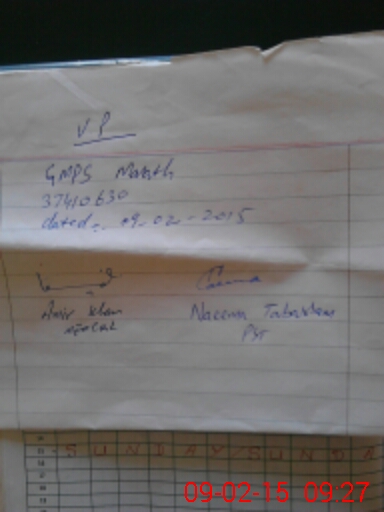 VP
GMPS Marath
37410630
dated:- 09-02-2015
Amir Khan
Naeem Tabassam
PST
SUNDAY SUNDA
09-02-15 09:27